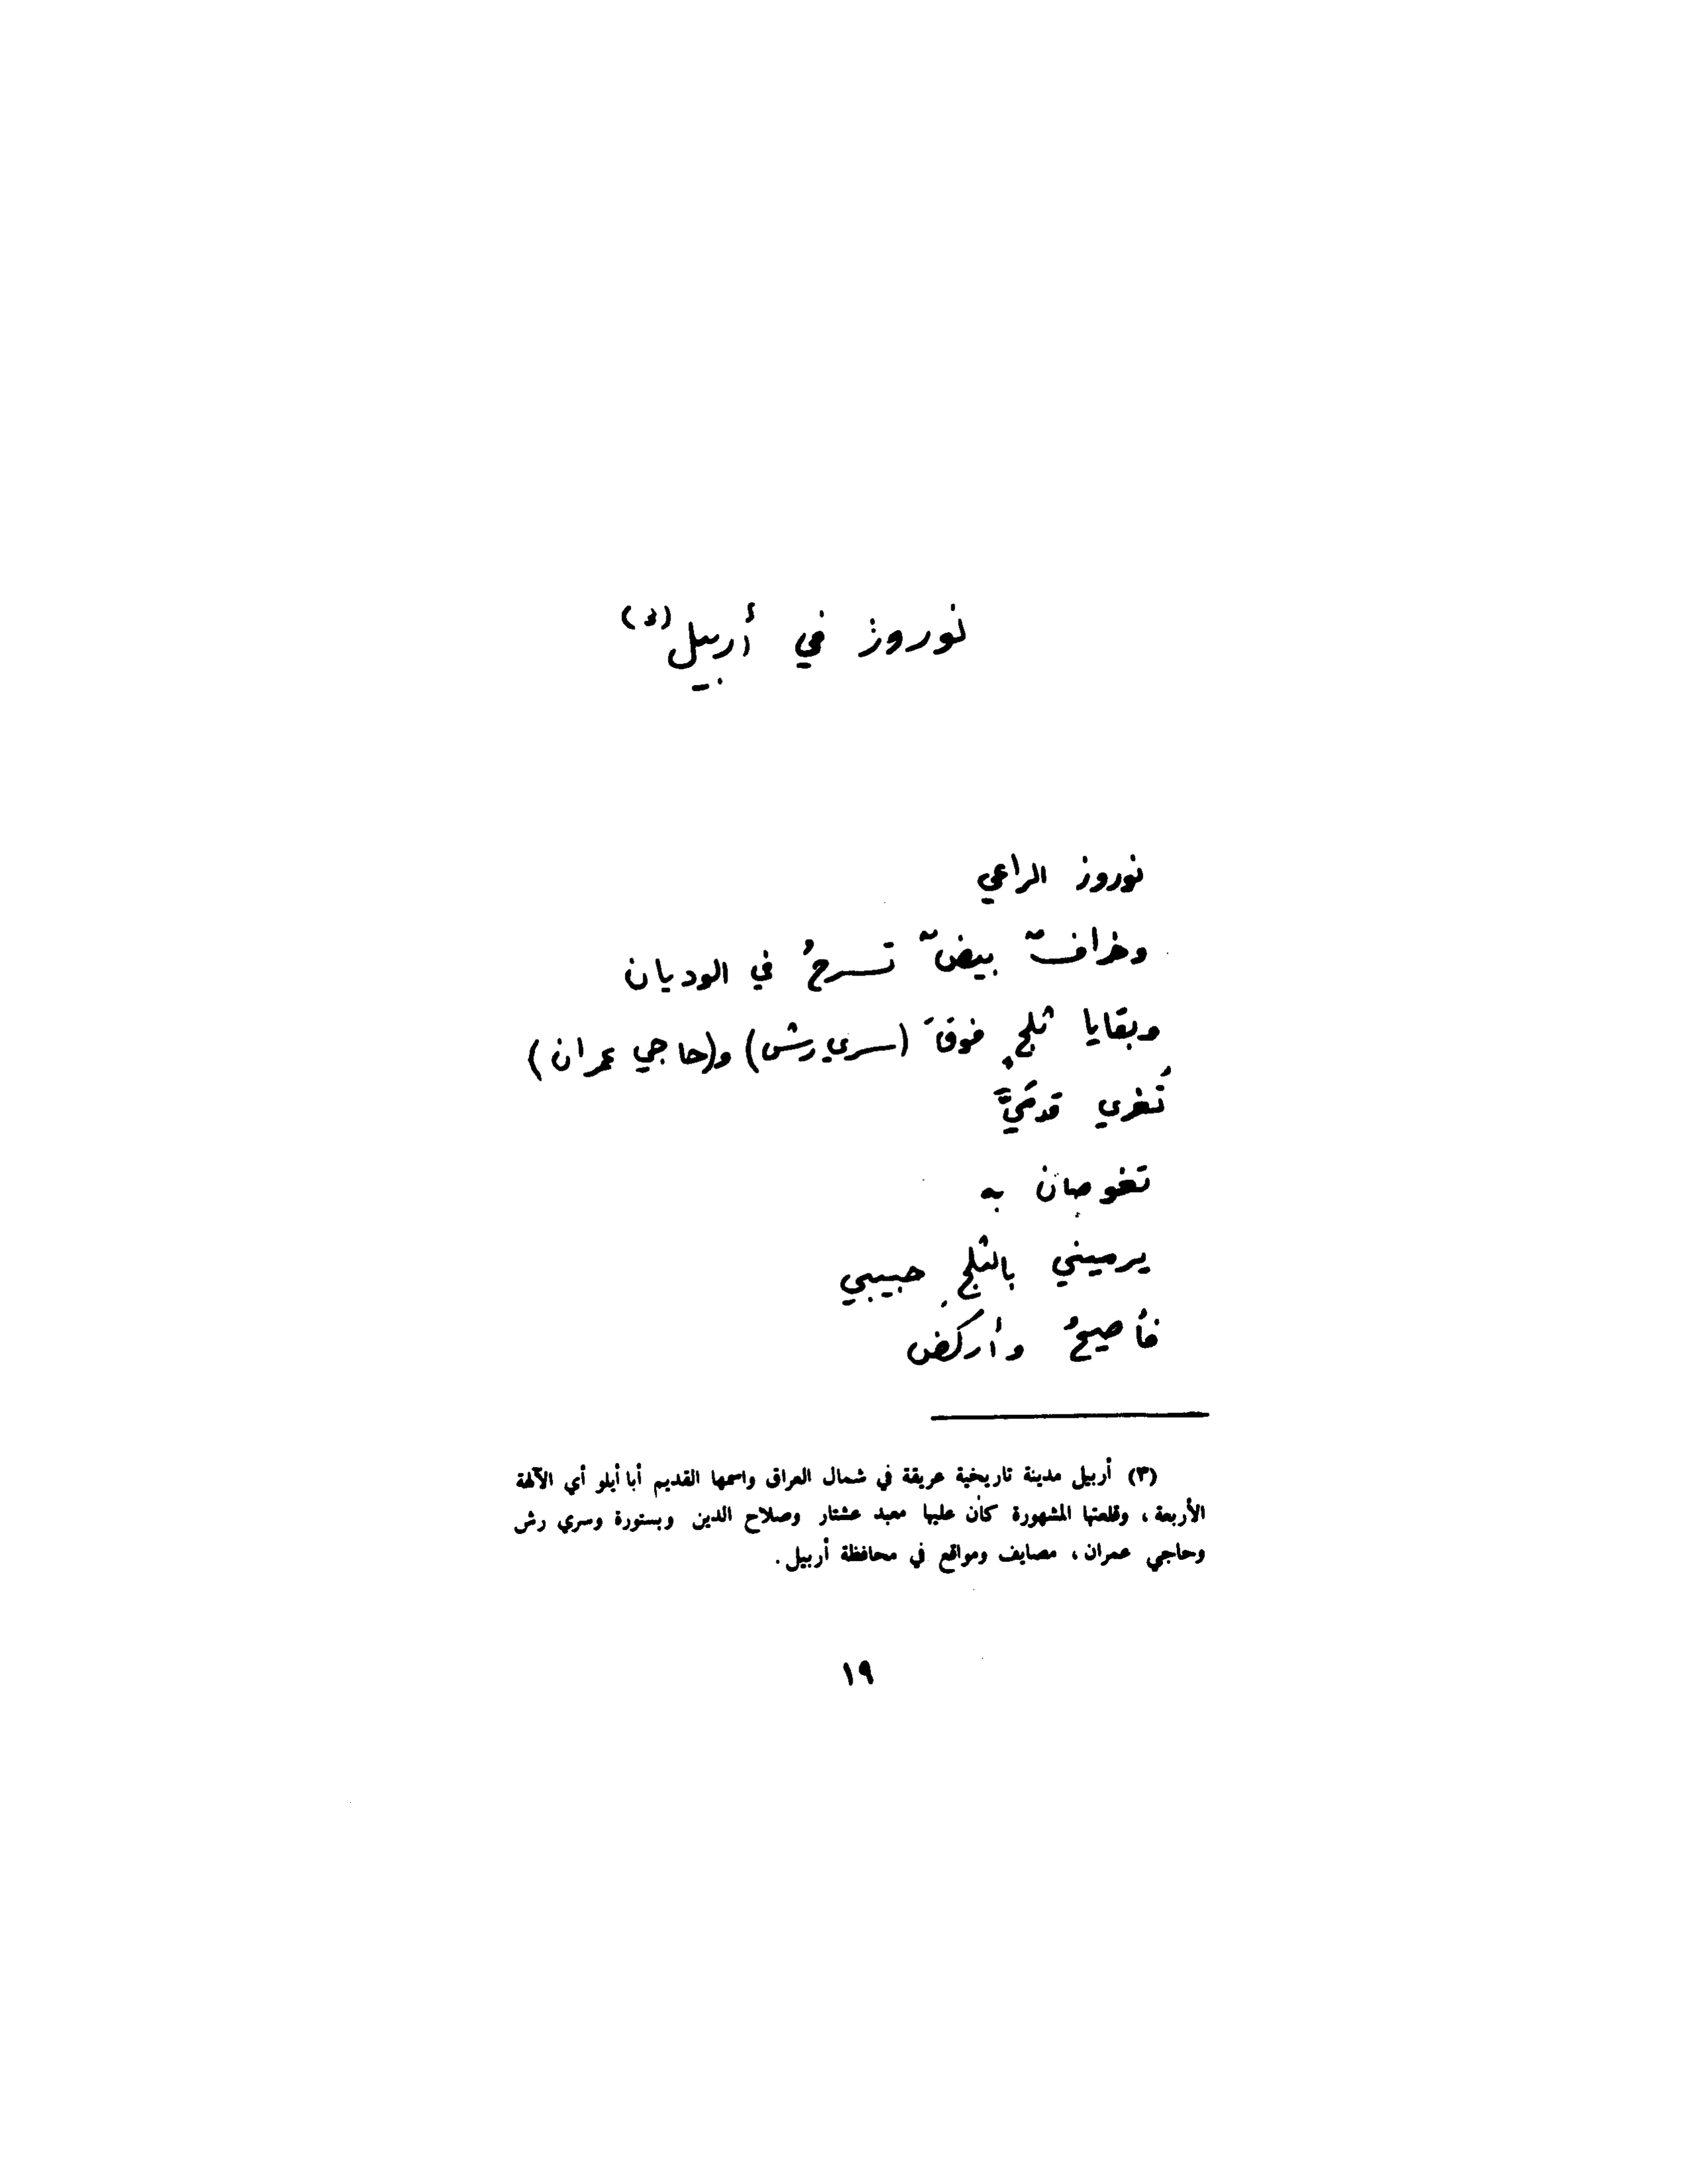 نوروز في أربيل (٣)
نوروز الراعي
وخرافٌ بيضٌ تسرحُ في الوديان
وبقايا ثلجٍ فوقَ (سري رش) و(حاجي عمران)
تُغري قدمَيَّ
تغوصان به
يرميني بالثلجِ حبيبي
فأصيحُ وأركض
(٣) أربيل مدينة تاريخية عريقة في شمال العراق واسمها القديم أبا أيلو أي الآلهة
الأربعة ، وقلعتها المشهورة كان عليها معبد عشتار وصلاح الدين وبستورة وسري رش
وحاجي عمران ، مصايف ومواقع في محافظة أربيل .
١٩